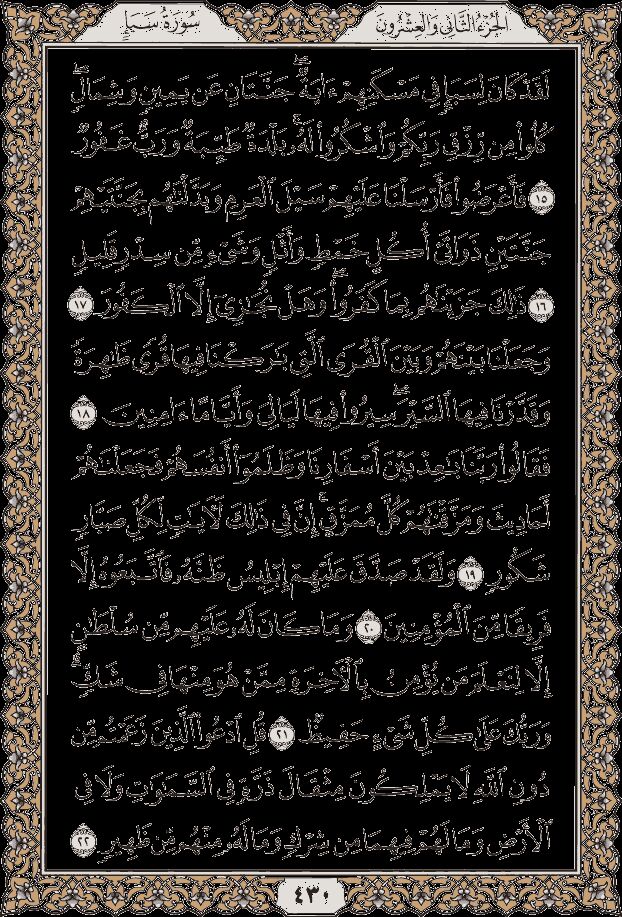 الجزء الثاني والعشرون
سورة سبإ
لَقَدْ كَانَ لِسَبَإٍ فِي مَسْكَنِهِمْ ءَايَةٌ ۖ جَنَّتَانِ عَن يَمِينٍ وَشِمَالٍ ۖ
كُلُوا۟ مِن رِّزْقِ رَبِّكُمْ وَٱشْكُرُوا۟ لَهُۥ ۚ بَلْدَةٌ طَيِّبَةٌ وَرَبٌّ غَفُورٌ
١٥ فَأَعْرَضُوا۟ فَأَرْسَلْنَا عَلَيْهِمْ سَيْلَ ٱلْعَرِمِ وَبَدَّلْنَٰهُم بِجَنَّتَيْهِمْ
جَنَّتَيْنِ ذَوَاتَىْ أُكُلٍ خَمْطٍ وَأَثْلٍ وَشَىْءٍ مِّن سِدْرٍ قَلِيلٍ
١٦ ذَٰلِكَ جَزَيْنَٰهُم بِمَا كَفَرُوا۟ ۖ وَهَلْ نُجَٰزِىٓ إِلَّا ٱلْكَفُورَ ١٧
وَجَعَلْنَا بَيْنَهُمْ وَبَيْنَ ٱلْقُرَى ٱلَّتِى بَٰرَكْنَا فِيهَا قُرًى ظَٰهِرَةً
وَقَدَّرْنَا فِيهَا ٱلسَّيْرَ ۖ سِيرُوا۟ فِيهَا لَيَالِىَ وَأَيَّامًا ءَامِنِينَ ١٨
فَقَالُوا۟ رَبَّنَا بَٰعِدْ بَيْنَ أَسْفَارِنَا وَظَلَمُوٓا۟ أَنفُسَهُمْ فَجَعَلْنَٰهُمْ
أَحَادِيثَ وَمَزَّقْنَٰهُمْ كُلَّ مُمَزَّقٍ ۚ إِنَّ فِى ذَٰلِكَ لَءَايَٰتٍ لِّكُلِّ صَبَّارٍ
شَكُورٍ ١٩ وَلَقَدْ صَدَّقَ عَلَيْهِمْ إِبْلِيسُ ظَنَّهُۥ فَٱتَّبَعُوهُ إِلَّا
فَرِيقًا مِّنَ ٱلْمُؤْمِنِينَ ٢٠ وَمَا كَانَ لَهُۥ عَلَيْهِم مِّن سُلْطَٰنٍ
إِلَّا لِنَعْلَمَ مَن يُؤْمِنُ بِٱلْءَاخِرَةِ مِمَّنْ هُوَ مِنْهَا فِى شَكٍّ ۗ
وَرَبُّكَ عَلَىٰ كُلِّ شَىْءٍ حَفِيظٌ ٢١ قُلِ ٱدْعُوا۟ ٱلَّذِينَ زَعَمْتُم مِّن
دُونِ ٱللَّهِ ۖ لَا يَمْلِكُونَ مِثْقَالَ ذَرَّةٍ فِى ٱلسَّمَٰوَٰتِ وَلَا فِى
ٱلْأَرْضِ وَمَا لَهُمْ فِيهِمَا مِن شِرْكٍ وَمَا لَهُۥ مِنْهُم مِّن ظَهِيرٍ ٢٢
٤٣٠